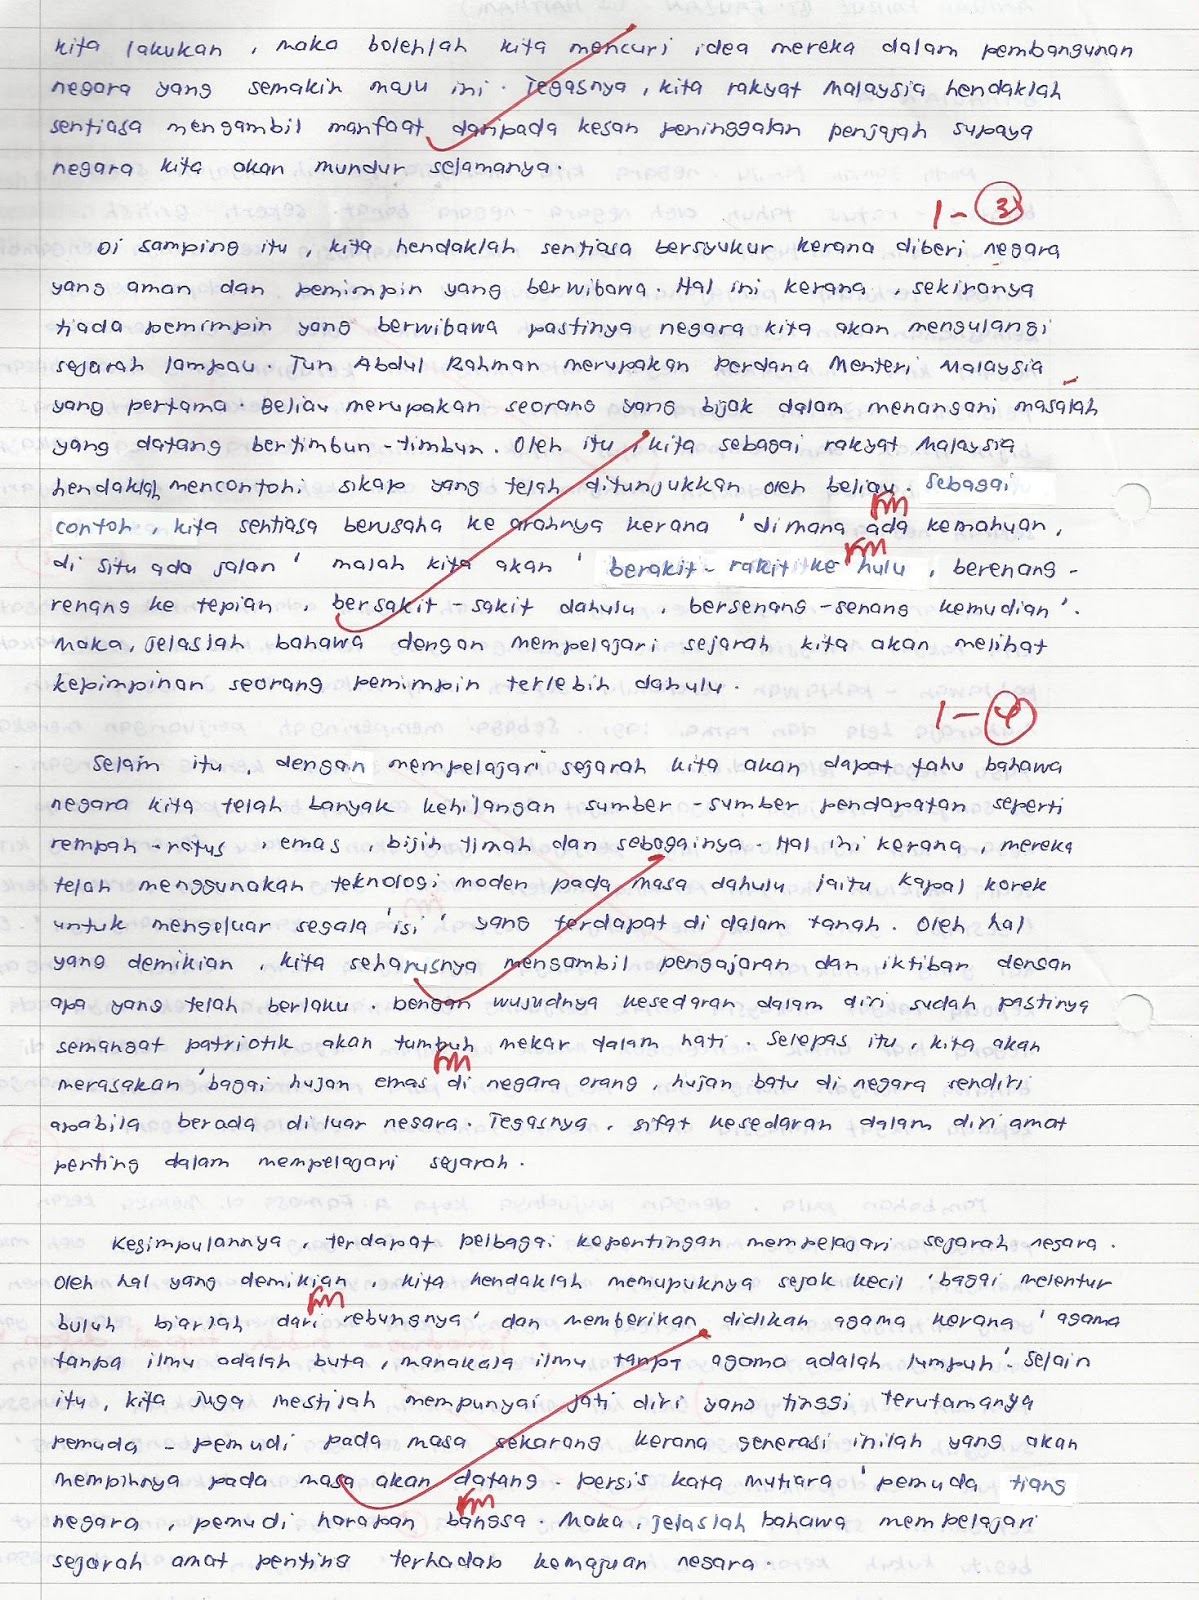 kita lakukan, maka bolehlah kita mencuri idea mereka dalam pembangunan
negara yang semakin maju ini. Tegasnya, kita rakyat Malaysia hendaklah
sentiasa mengambil manfaat daripada kesan peninggalan penjajah supaya
negara kita akan mundur selamanya.
1 - 3
Di samping itu, kita hendaklah sentiasa bersyukur kerana diberi negara
yang aman dan pemimpin yang berwibawa. Hal ini kerana, sekiranya
tiada pemimpin yang berwibawa pastinya negara kita akan mengulangi
sejarah lampau. Tun Abdul Rahman merupakan Perdana Menteri Malaysia
yang pertama. Beliau merupakan seorang yang bijak dalam menangani masalah
yang datang bertimbun-timbun. Oleh itu, kita sebagai rakyat Malaysia
hendaklah mencontohi sikap yang telah ditunjukkan oleh beliau. Sebagai
FM
contoh, kita sentiasa berusaha ke arahnya kerana 'dimana ada kemahuan,
FM
di situ ada jalan' malah kita akan 'berakit-rakit ke hulu, berenang-
renang ke tepian, bersakit-sakit dahulu, bersenang-senang kemudian'.
Maka, jelaslah bahawa dengan mempelajari sejarah kita akan melihat
kepimpinan seorang pemimpin terlebih dahulu.
1 - 4
Selain itu, dengan mempelajari sejarah kita akan dapat tahu bahawa
negara kita telah banyak kehilangan sumber-sumber pendapatan seperti
rempah-ratus, emas, bijih timah dan sebagainya. Hal ini kerana, mereka
telah menggunakan teknologi moden pada masa dahulu iaitu kapal korek
untuk mengeluar segala 'isi' yang terdapat di dalam tanah. Oleh hal
yang demikian, kita seharusnya mengambil pengajaran dan iktibar dengan
apa yang telah berlaku. Dengan wujudnya kesedaran dalam diri sudah pastinya
semangat patriotik akan tumbuh mekar dalam hati. Selepas itu, kita akan
FM
merasakan 'bagai hujan emas di negara orang, hujan batu di negara sendiri
apabila berada di luar negara. Tegasnya, sifat kesedaran dalam diri amat
penting dalam mempelajari sejarah.
Kesimpulannya, terdapat pelbagai kepentingan mempelajari sejarah negara.
Oleh hal yang demikian, kita hendaklah memupuknya sejak kecil 'bagai melentur
FM
buluh biarlah dari rebungnya' dan memberikan didikan agama kerana 'agama
tanpa ilmu adalah buta, manakala ilmu tanpa agama adalah lumpuh'. Selain
itu, kita juga mestilah mempunyai jati diri yang tinggi terutamanya
pemuda-pemudi pada masa sekarang kerana generasi inilah yang akan
mempihnya pada masa akan datang. Persis kata mutiara 'pemuda tiang
FM
negara, pemudi harapan bangsa. Maka, jelaslah bahawa mempelajari
sejarah amat penting terhadap kemajuan negara.